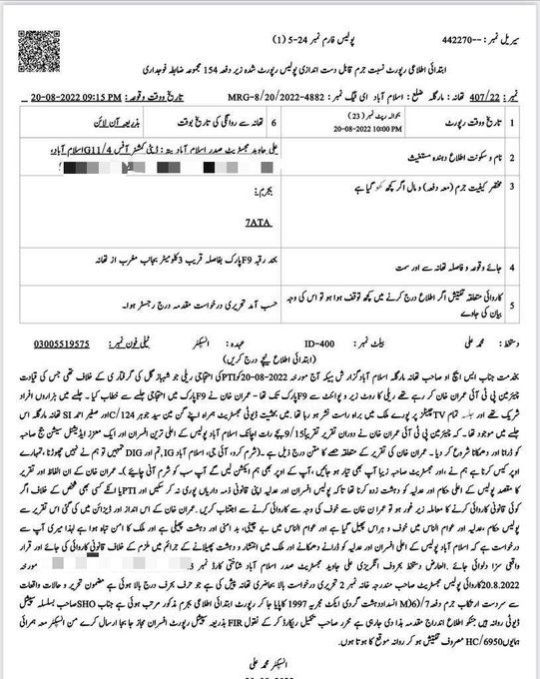 سیریل نمبر :--442270
پولیس فارم نمبر 24-5 (1)
ابتدائی اطلاعی رپورٹ نسبت جرم قابل دست اندازی پولیس رپورٹ شدہ زیر دفعہ 154 مجموعہ ضابطہ فوجداری
نمبر: 407/22 تھانہ: مارگلہ ضلع: اسلام آباد ای ٹیگ نمبر: MRG-8/20/2022-4882 تاریخ و وقت وقوعہ: 20-08-2022 09:15 PM
1 تاریخ و وقت رپورٹ بحوالہ رپٹ نمبر (23)
20-08-2022 10:00 PM
6 تھانہ سے روانگی کی تاریخ و وقت بذریعہ آن لائن
2 نام و سکونت اطلاع دہندہ مستغیث علی جاوید مجسٹریٹ صدر اسلام آباد پتہ: ڈپٹی کمشنر آفس G11/4 اسلام آباد،
3 مختصر کیفیت جرم (معہ دفعہ) و مال اگر کچھ کھو گیا ہے بجرم:
7ATA
4 جائے وقوعہ و فاصلہ تھانہ سے اور سمت بحد رقبہ F9 پارک بفاصلہ قریب 3 کلومیٹر بجانب مغرب از تھانہ
5 کاروائی متعلقہ تفتیش اگر اطلاع درج کرنے میں کچھ توقف ہوا ہو تو اس کی وجہ بیان کی جاوے حسب آمد تحریری درخواست مقدمہ درج رجسٹر ہوا۔
دستخط: محمد علی بیلٹ نمبر: ID-400 عہدہ: انسپکٹر ٹیلی فون نمبر: 03005519575
(ابتدائی اطلاع نیچے درج کریں)
بخدمت جناب ایس ایچ او صاحب تھانہ مارگلہ اسلام آباد گزارش ہیکہ آج مورخہ 20-08-2022 کو PTI کی احتجاجی ریلی جو شہباز گل کی گرفتاری کے خلاف تھی جس کی قیادت
چیئرمین پی ٹی آئی عمران خان کر رہے تھے ریلی کا روٹ زیرو پوائنٹ سے F9 پارک تک تھا۔ عمران خان نے F9 پارک میں احتجاجی جلسے سے خطاب کیا۔ جلسے میں ہزاروں افراد
شریک تھے اور جلسہ تمام TV چینلز پر پورے ملک میں براہ راست نشر ہو رہا تھا۔ میں بحثیت ڈیوٹی مجسٹریٹ ہمراہ اپنے گن مین سید جوہر 124/C اور صغیر احمد SI تھانہ مارگلہ اس
جلسے میں موجود تھا۔ کہ چیئرمین پی ٹی آئی عمران خان نے دوران تقریر تقریباً 9/15 بجے رات اچانک اسلام آباد پولیس کے اعلی ترین افسران اور ایک معزز ایڈیشنل سیشن جج صاحبہ
کو ڈرانا و دھمکانا شروع کر دیا۔ عمران خان کی تقریر کے متعلقہ حصے کا متن درج ذیل ہے۔ (شرم کرو، آئی جی اسلام آباد IG، تم اور DIG تمہیں تو ہم نے نہیں چھوڑنا، تمہارے
اوپر کیس کرنا ہے ہم نے، اور مجسٹریٹ صاحبہ زیبا آپ بھی تیار ہو جائیں، آپ کے اوپر بھی ہم ایکشن لیں گے آپ سب کو شرم آنی چاہئے)۔ عمران خان کے ان الفاظ اور تقریر
کا مقصد پولیس کے اعلی حکام اور عدلیہ کو دہشت زدہ کرنا تھا تاکہ پولیس افسران اور عدلیہ اپنی قانونی ذمہ داریاں پوری نہ کر سکیں اور PTI یا انکے کسی بھی شخص کے خلاف اگر
کوئی قانونی کاروائی کرنے کا معاملہ زیر غور ہو تو عمران خان کے خوف کی وجہ سے کاروائی کرنے سے اجتناب کریں۔ عمران خان کے اس انداز اور ڈیزائن میں کی گئی تقریر سے
پولیس حکام، عدلیہ اور عوام الناس میں خوف و ہراس پھیل گیا ہے اور عوام الناس میں بے چینی، بد امنی اور دہشت پھیلی ہے اور ملک کا امن تباہ ہوا ہے لہذا میری آپ سے
درخواست ہے کہ اسلام آباد پولیس کے اعلی افسران اور عدلیہ کو ڈرانے دھمکانے اور ملک میں انتشار و دہشت پھیلانے کے جرائم میں ملزم کے خلاف قانونی کاروائی کی جائے اور قرار
واقعی سزا دلوائی جائے۔ العارض دستخط بحروف انگریزی علی جاوید مجسٹریٹ صدر اسلام آباد شناختی کارڈ نمبر 3 مورخہ
20.8.2022 کاروائی پولیس مجسٹریٹ صاحب مندرجہ خانہ نمبر 2 تحریری درخواست بالا بحاضری تھانہ پیش کی ہے جو حرف بحرف درج بالا ہوئی ہے مضمون تحریر و حالات واقعات
سے سردست ارتکاب جرم دفعہ 7/(6)M انسداد دہشت گردی ایکٹ مجریہ 1997 کا پایا جا کر رپورٹ ابتدائی اطلاعی بجرم مذکور مرتب ہوئی ہے جناب SHO صاحب بسلسلہ سپیشل
ڈیوٹی روانہ ہیں جنکو اطلاع اندراج مقدمہ ہذا دی جا رہی ہے محرر صاحب تکمیل ریکارڈ کر کے نقول FIR بذریعہ سپیشل رپورٹ افسران مجاز بجا بجا ارسال کرے من انسپکٹر معہ ہمراہی
ہمایوں HC/6950 مصروف تفتیش ہو کر روانہ موقع کا ہوتا ہوں۔
انسپکٹر محمد علی